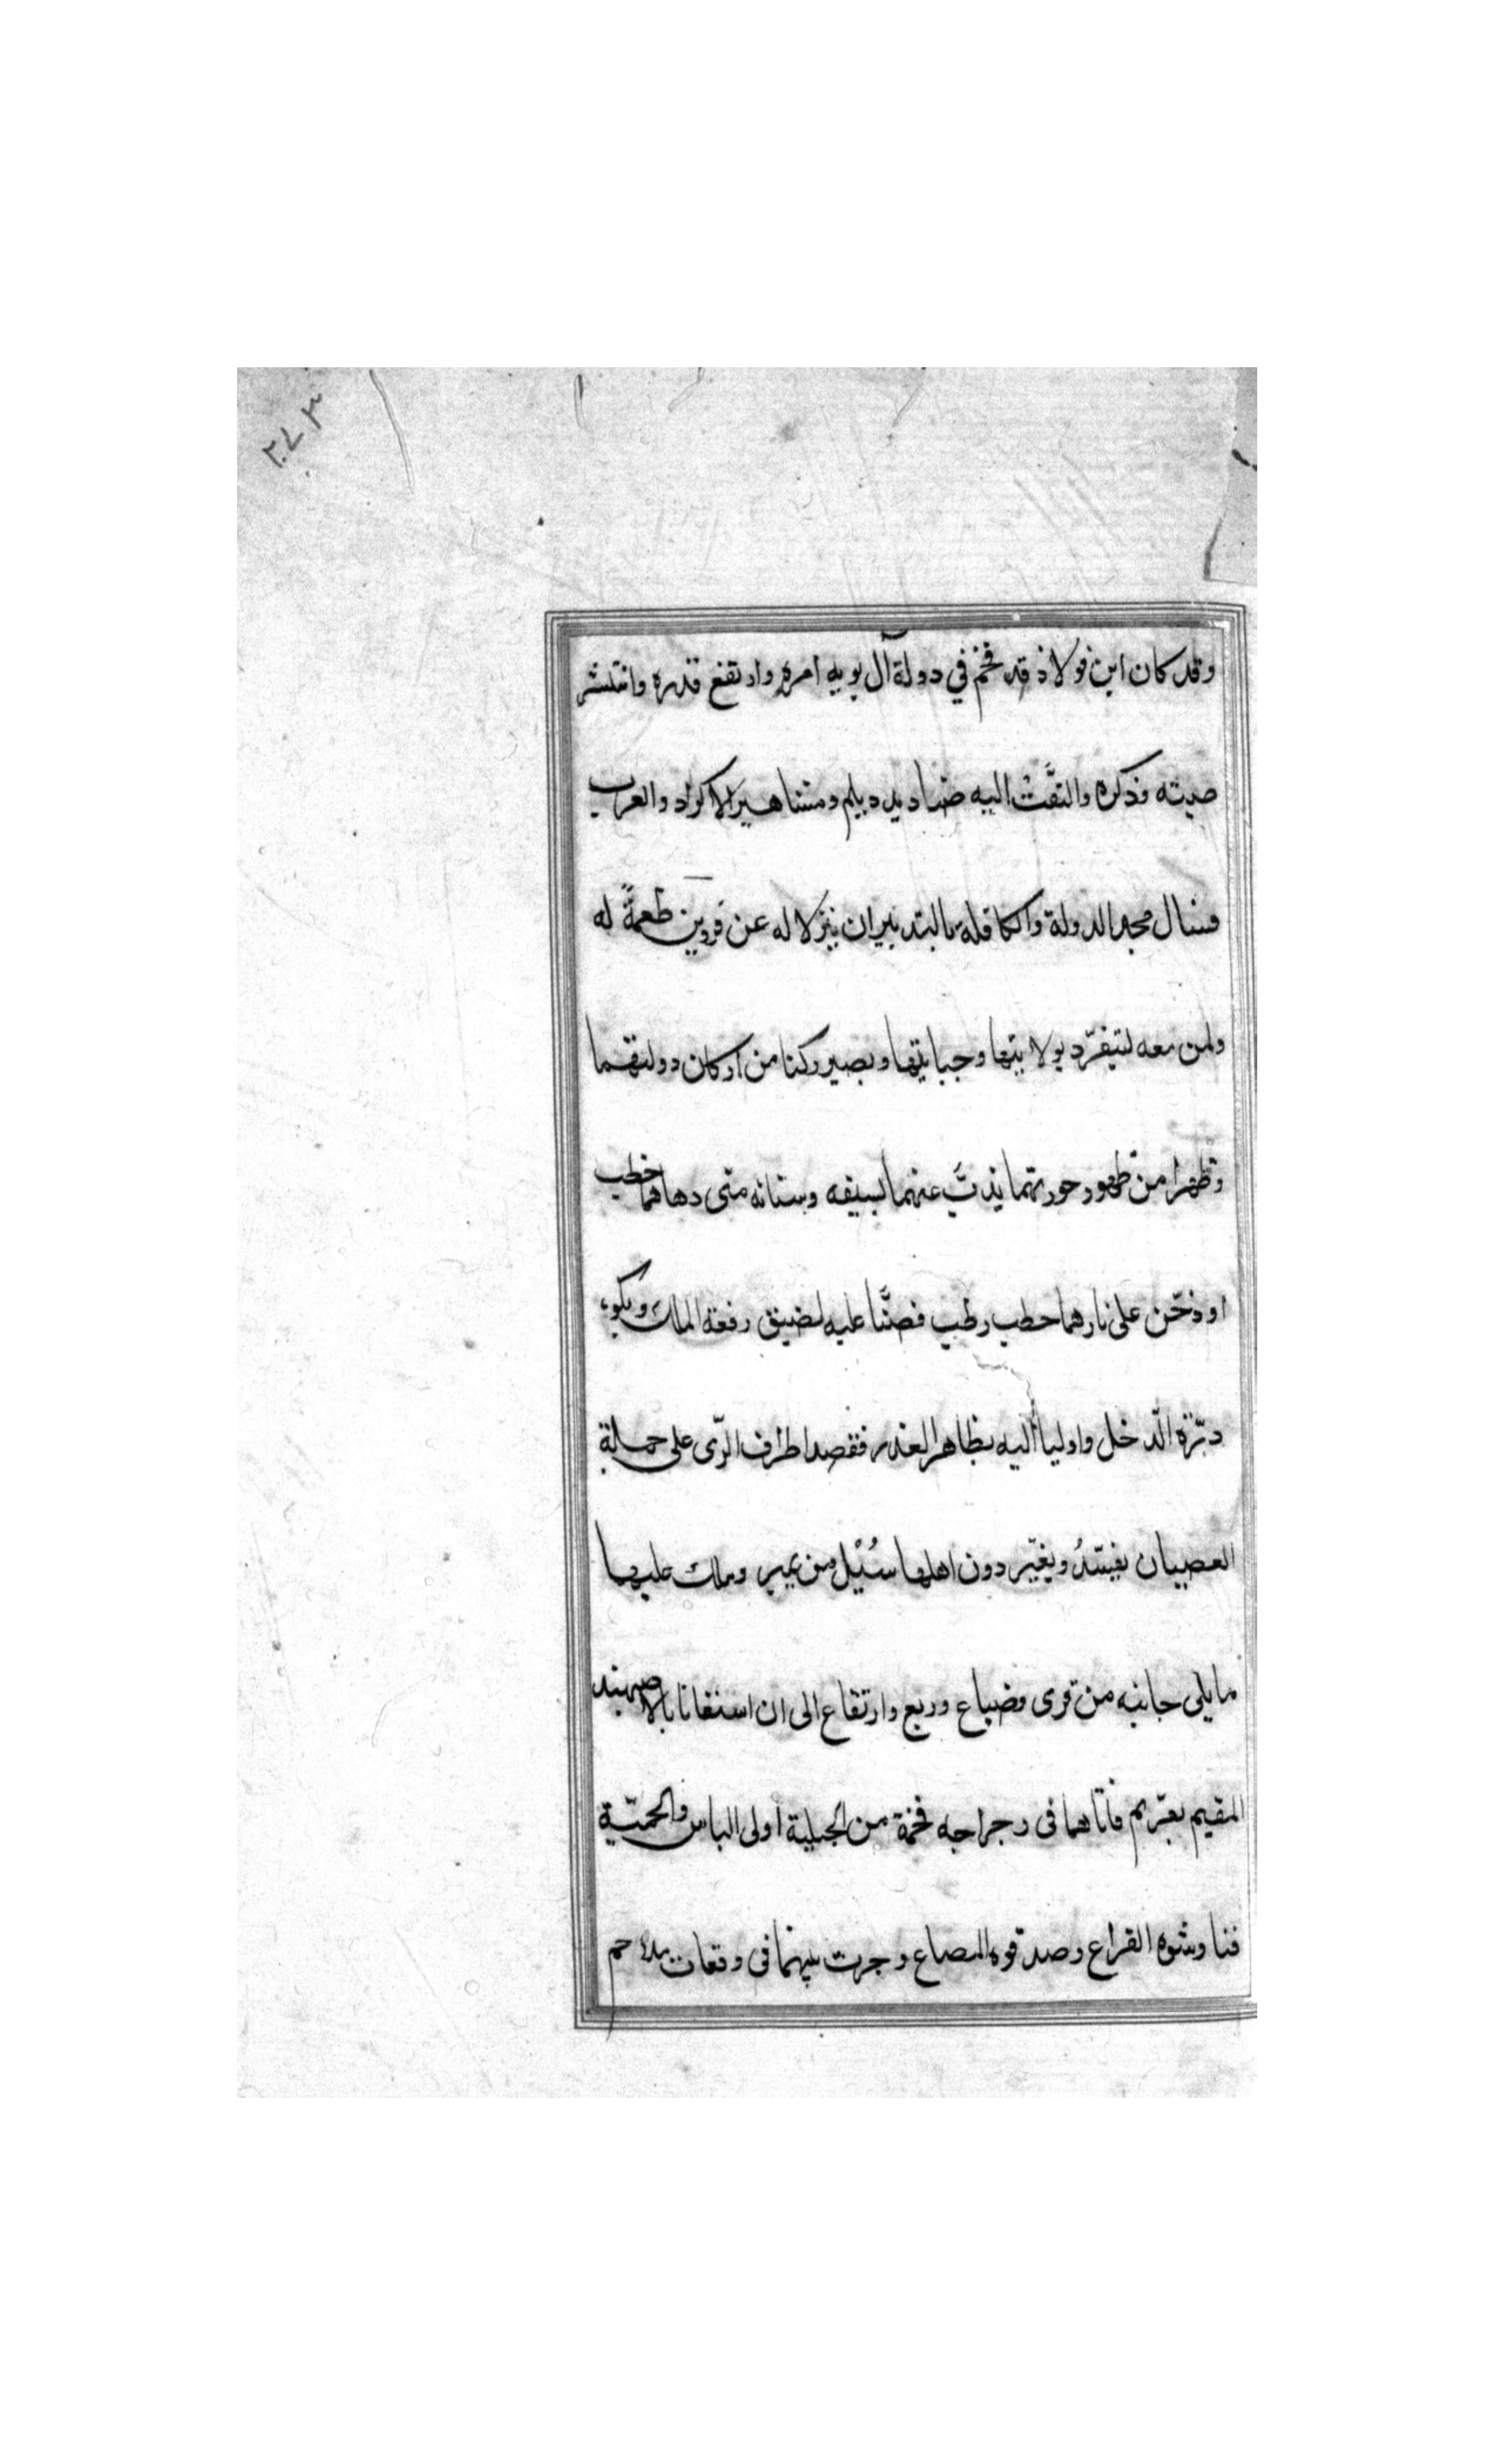 ٢٧٣
وقد كان ابن فولاذ قد فخم في دولة آل بويه امره وارتفع قدره وانتشر
صيته وذكره والتفّت اليه صناديد ديلم ومشاهير الاكراد والعرب
فسال مجد الدولة والكافلة بالتدبير ان ينزلا له عن قزوين طعمةً له
ولمن معه ليتفرّد بولايتها وجبايتها ويصير ركنا من اركان دولتهما
وظهرا من ظهور حوزتهما يذبّ عنهما بسيفه وسنانه متى دهاهما خطب
او دخّن على نارهما حطب رطب فضنّا عليه لضيق رقعة الملك
الدّخل واوليا اليه بظاهر العذر فقصد اطراف الرّى على حملة
العصيان يفسدُ ويغيّر دون اهلها سُبُل من يمير وملك عليهما
ما يلى جانبه من قرى وضياع وربع وارتفاع الى ان استغاثا بالاصبهبد
المقيم بفرّيم فاتاهما فى رجراجه فخمة من الجبلية اولى الباس والحميّة
فناوشوه القراع وصدقوه المصاع وجرت بينهما فى وقعات